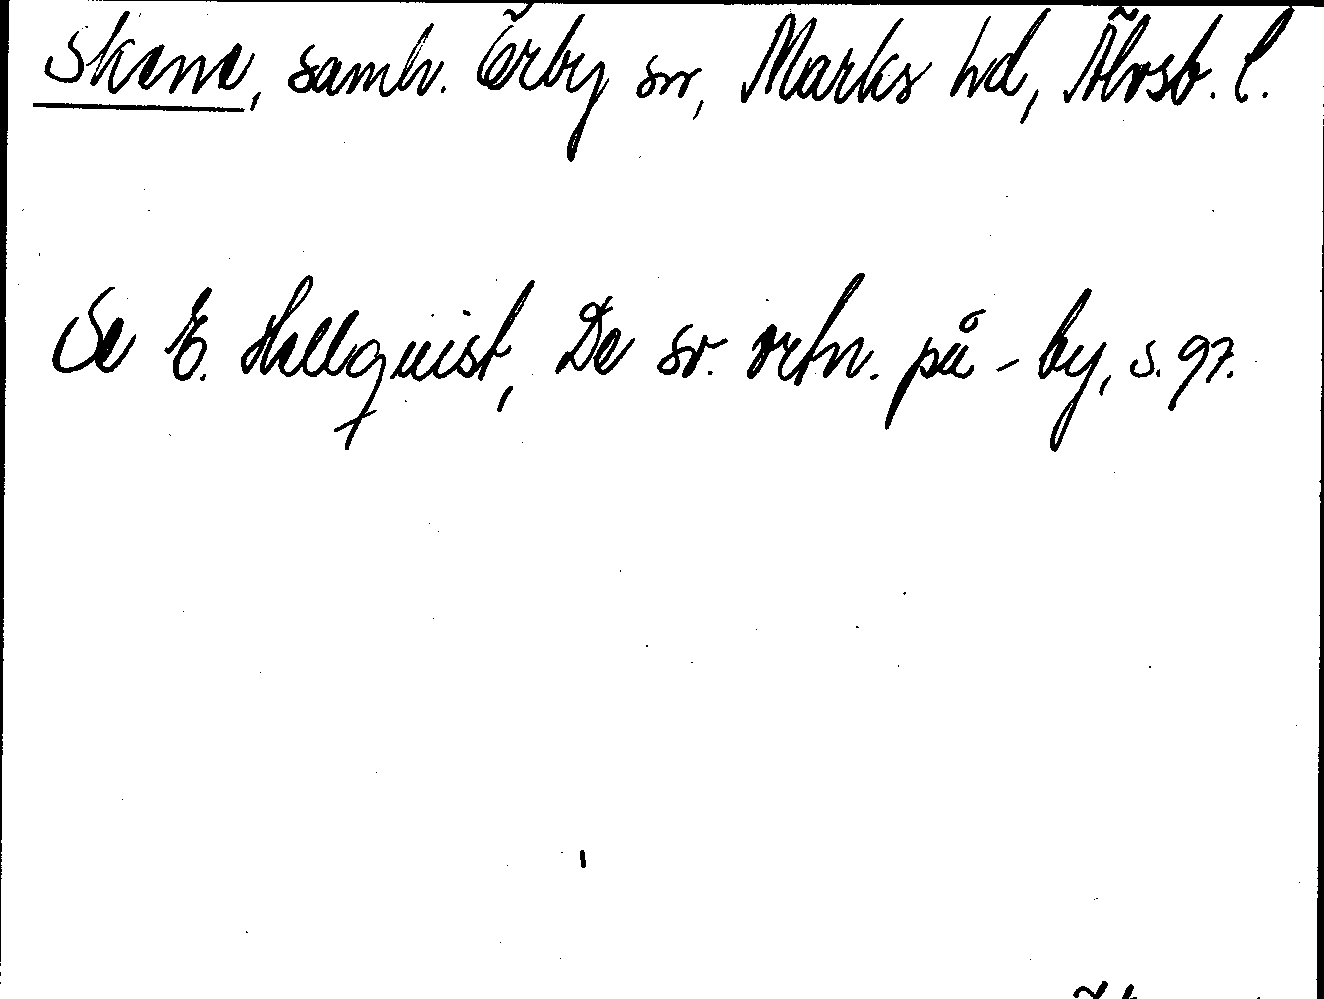 Skene, samh. Örby sn, Marks hd, Älvsb. l.
Se E. Hellquist, De sv. ortn. på -by, s. 97.